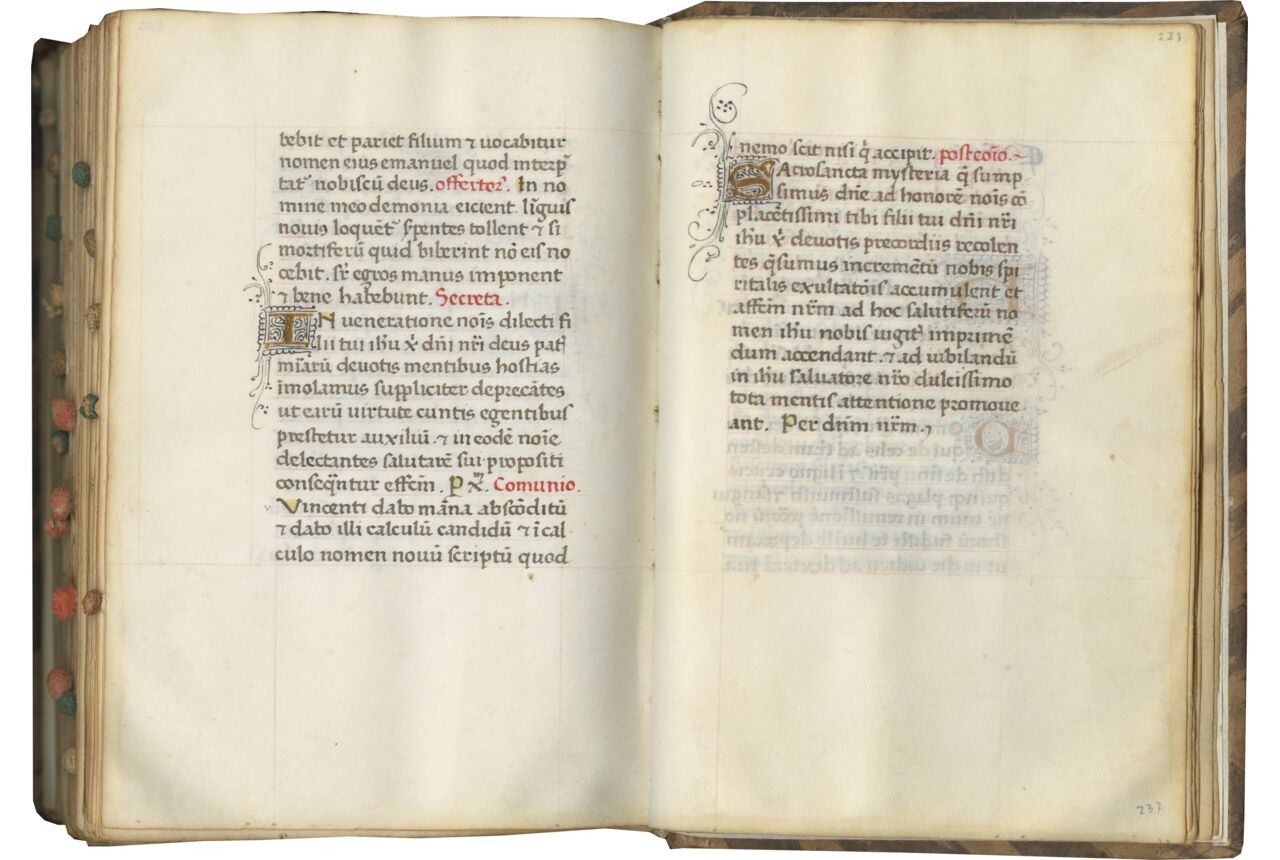 bebit et pariet filium ⁊ uocabitur
nomen eius emanuel quod interp̄
tat᷑ nobiscū deus. offertor᷑. In no
mine meo demonia eicient. lı̄guis
nouis loquēt᷑ s̄pentes tollent ⁊ si
mortiferū quid biberint nō eis no
cebit. sr̄ egros manus imponent
⁊ bene habebunt. Secreta.
IN ueneratione noīs dilecti fi
lii tui ihu x̄ dn̄i nr̄i deus pat᷑
mīarū deuotis mentibus hostias
īmolamus suppliciter deprecātes
ut earū uirtute cuntis egentibus
prestetur auxiliū. ⁊ in eodē noīe
delectantes salutarē sui propositi
conseqn̄tur effcm̄. P x̄. Comunio.
Vincenti dabo māna abscōditū
⁊ dabo illi calculū candidū ⁊ ī cal
culo nomen nouū scriptū quod
237
nemo scit nisi q̄ accipit. postcōio.
SAcrosancta mysteria q̄ sump
simus dn̄e ad honorē noīs cō
placētissimi tibi filii tui dn̄i nr̄i
ihu x̄ deuotis precordiis recolen
tes q̄sumus incremētū nobis spi
ritalis exultatōis accumulent et
affcm̄ nr̄m ad hoc salutiferū no
men ihu nobis uigit᷑ imprimē
dum accendant. ⁊ ad iubilandū
in ihu saluatore nr̄o dulcissimo
tota mentis attentione promoue
ant. Per dn̄m nr̄m.⁊
237